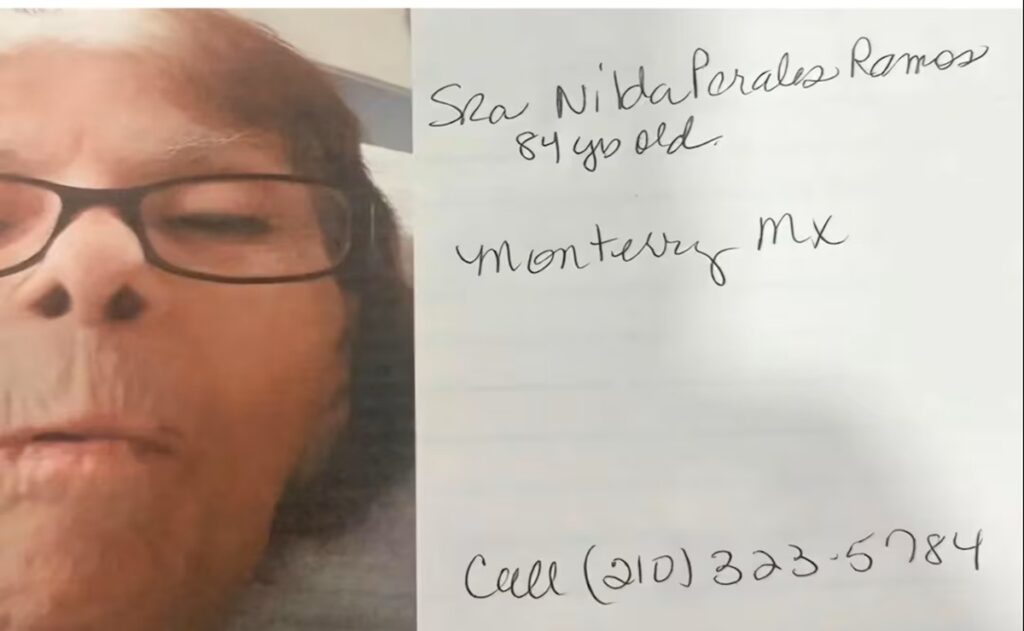 Sra Nilda Perales Ramos
84 yo old.
Monterry Mx
Call (210) 323-5784